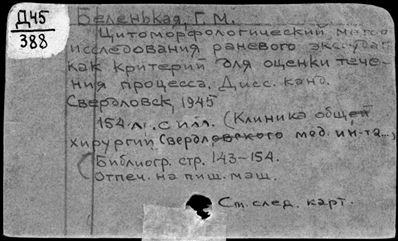 Д45
388
Беленькая, Г. М.
Цитоморфологический метод
исследования раневого экссудат
как критерий для оценки тече-
ния процесса. Дисс. канд.
Свердловск, 1945
154 л. с илл. (Клиника общей
хирургии Свердловского мед. ин-та...)
Библиогр. стр. 143-154.
Отпеч. на пиш. маш.
См. след. карт.